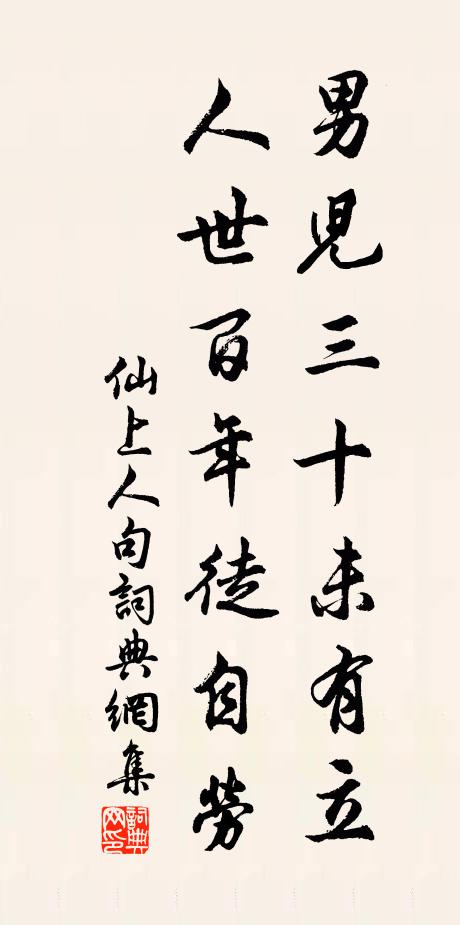 男兒三十未有立
人世百年徒自勞
仙上人句詞典網集
詞典网印